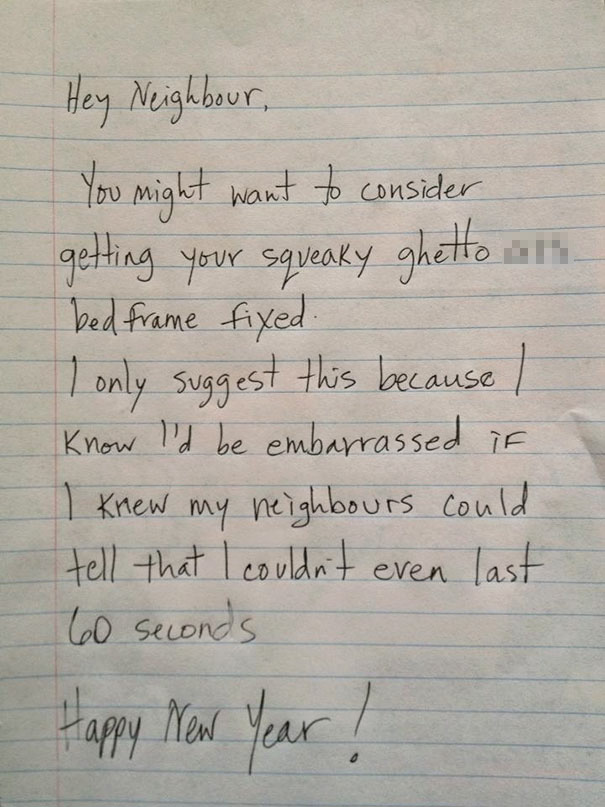 Hey Neighbour,
You might want to consider
getting your squeaky ghetto
bed frame fixed.
I only suggest this because I
know I'd be embarrassed if
I knew my neighbours could
tell that I couldn't even last
60 seconds
Happy New Year!